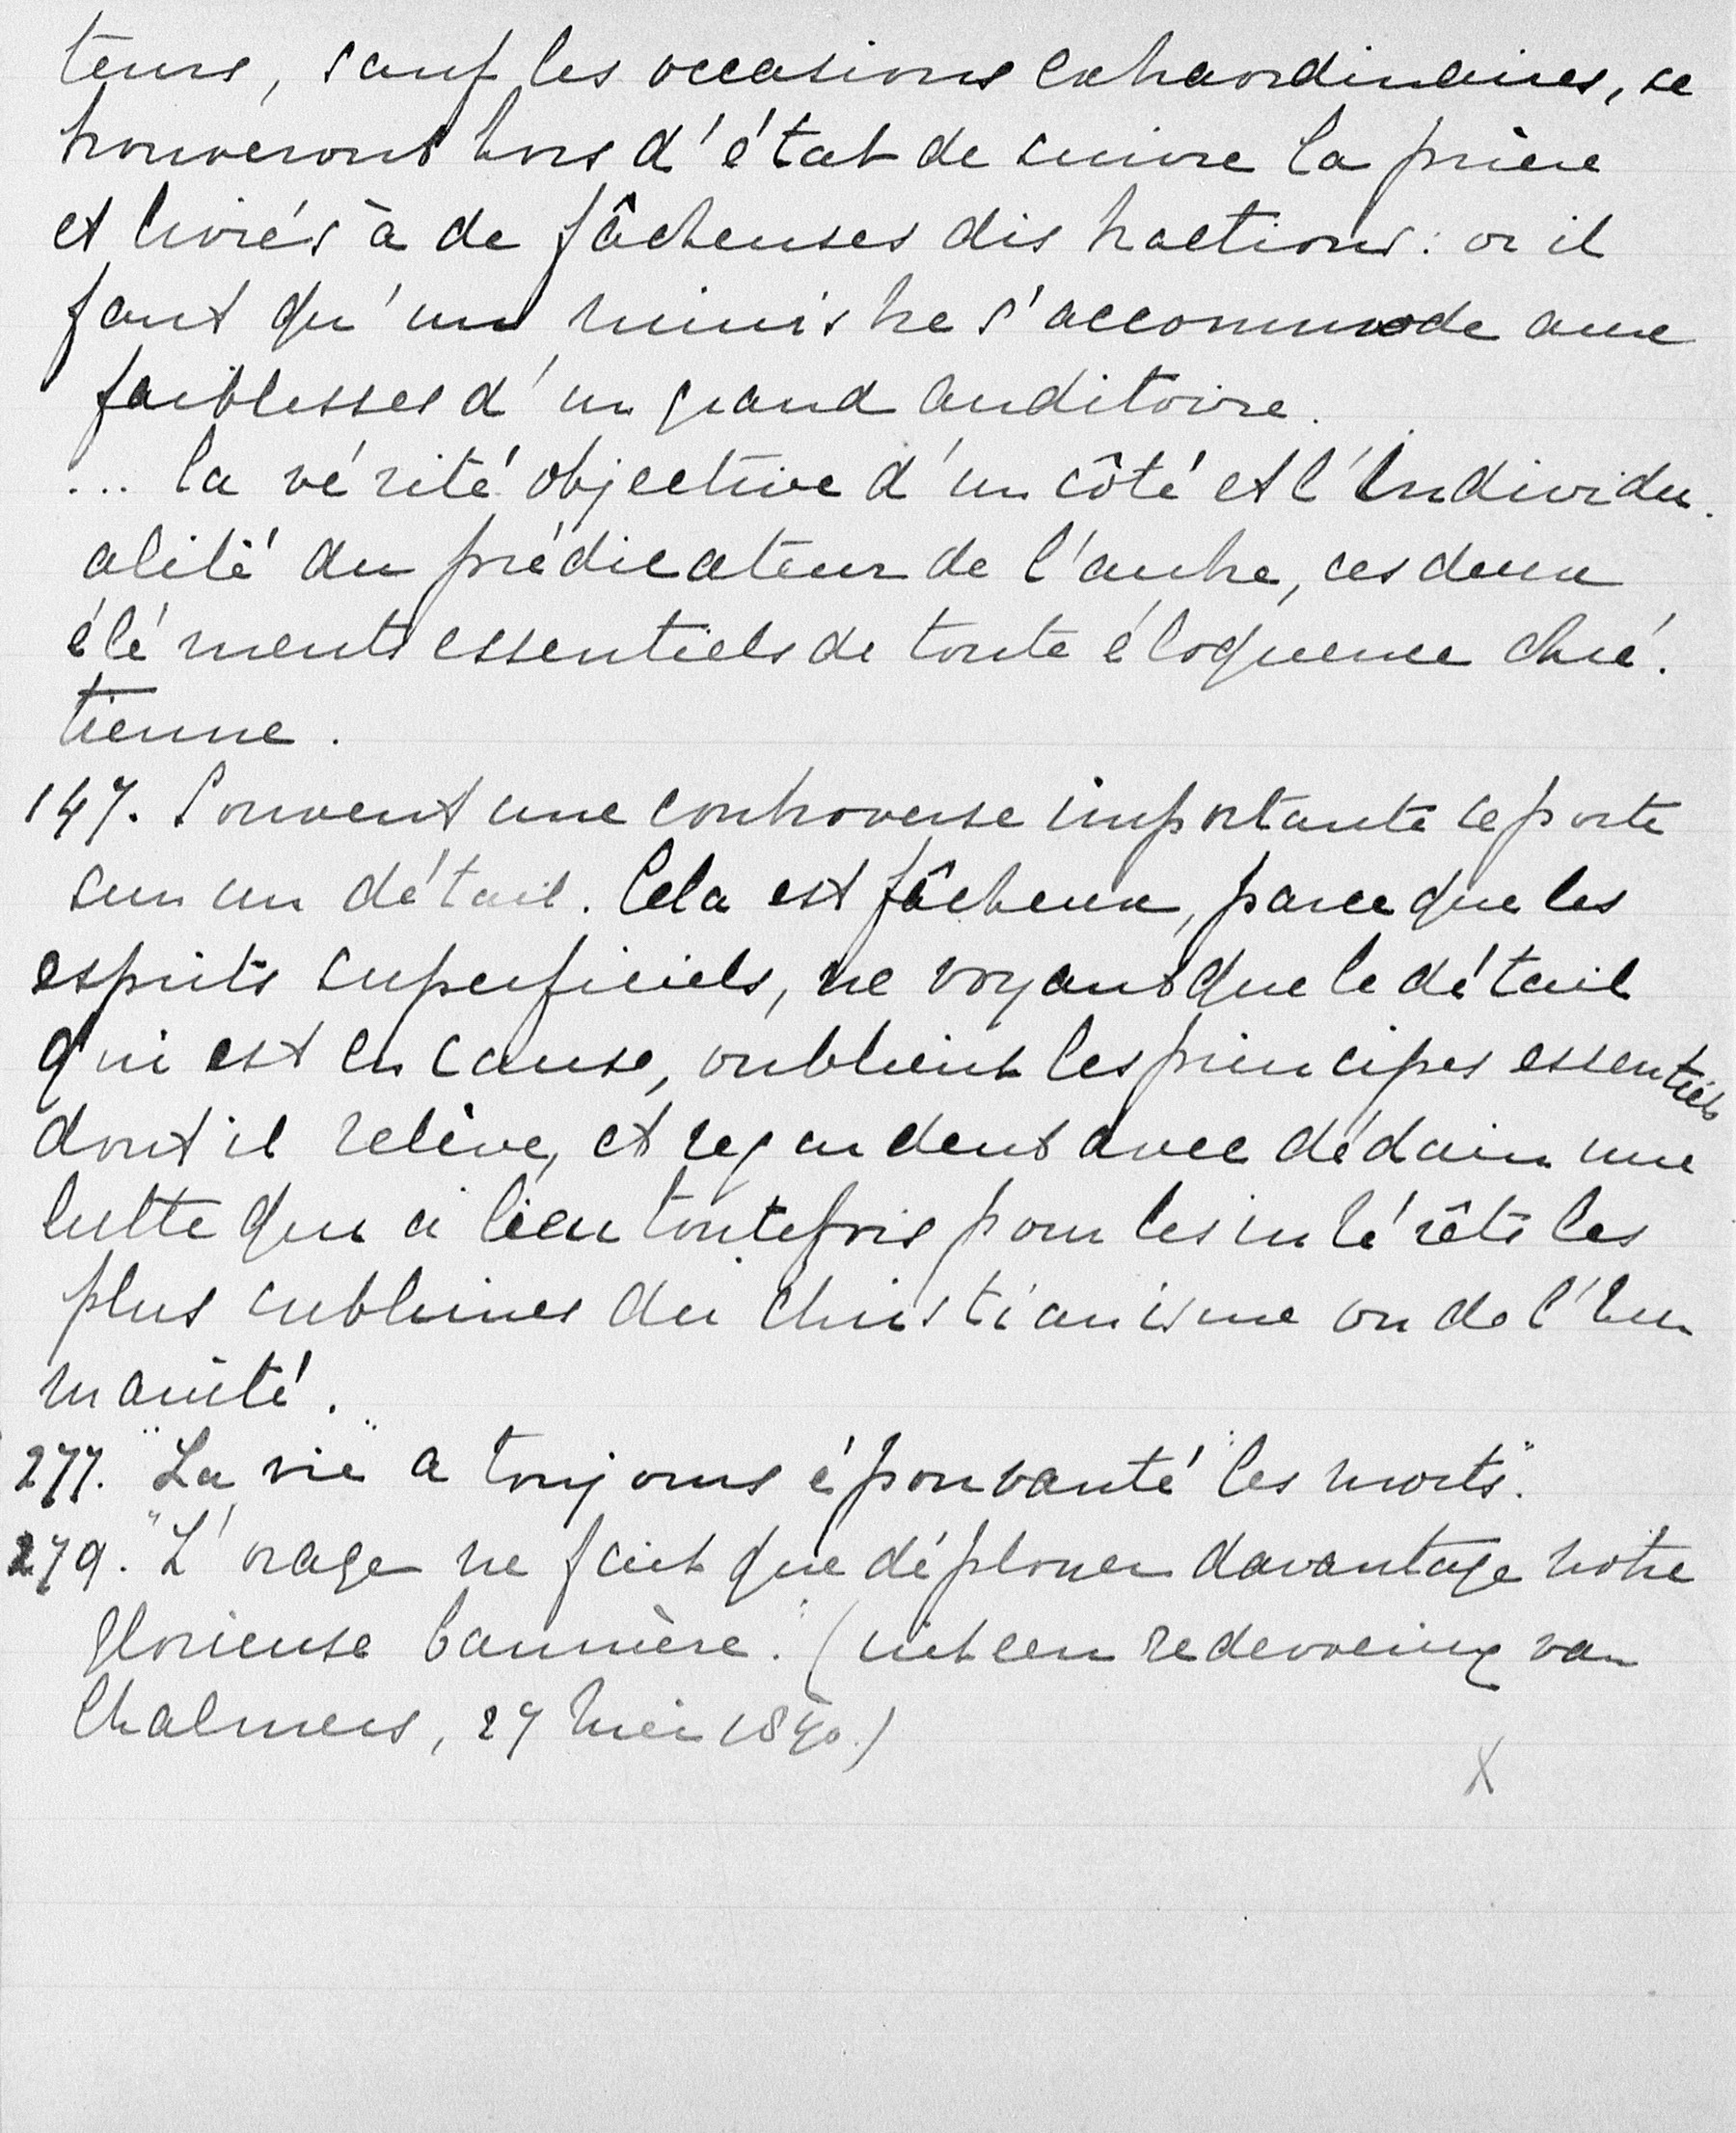 teurs, sauf les occasions extraordinaires, se
trouveront hors d'état de suivre la prière
et livrés à de fâcheuses distractions: or il
faut qu'un ministre s'accommode aux
faiblesses d'un grand auditoire.
... la vérité objective d'un côté et l'individu-
alité du prédicateur de l'autre, ces deux
éléments essentiels de toute éloquence chré-
tienne.
147. Souvent une controverse importante se porte
sur un détail. Cela est fâcheux, parce que les
esprits superficiels, ne voyant que le détail
qui est en cause, oublient les principes essentiels
dont il relève, et regardent avec dédain une
lutte qui a lieu toutefois pour les intérêts les
plus sublimes du Christianisme ou de l'hu-
manité.
277. "La vie" a toujours épouvanté "les morts".
279. "L'orage ne fait que déployer davantage notre
glorieuse bannière." (uit een redevoering van
Chalmers, 27 Mei 1840.)
X